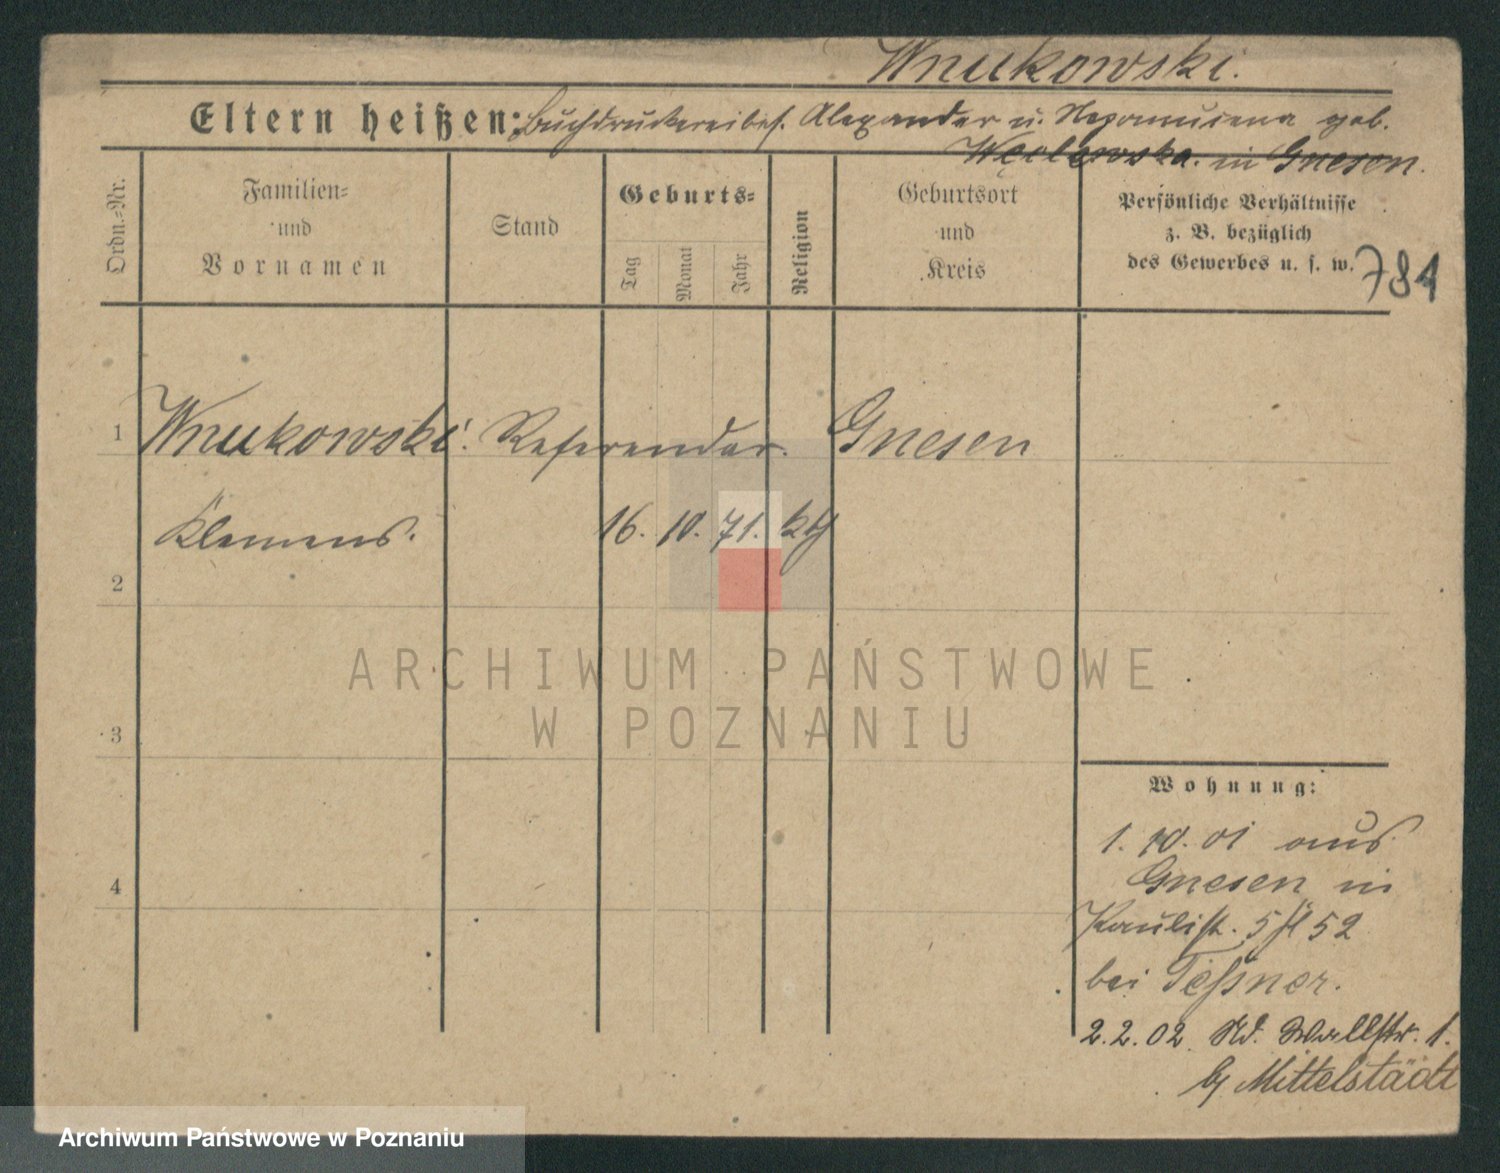 Wnukowski.
Eltern heißen: Buchdruckereibes. Alexander u. Nepomucena geb.
Węclewska. in Gnesen.
Ordn.=Nr.
Familien=
und
Vornamen
Stand
Geburts=
Tag
Monat
Jahr
Religion
Geburtsort
und
Kreis
Persönliche Verhältnisse
z. B. bezüglich
des Gewerbes u. s. w.
781
1 Wnukowski. Referendar. Gnesen
Klemens. 16. 10. 71. kth
2
ARCHIWUM PAŃSTWOWE
W POZNANIU
3
Wohnung:
1. 10. 01 aus
4 Gnesen in
Paulist. 5 52
bei Teßner.
2.2.02. Wallstr. 1.
Mittelstädt
Archiwum Państwowe w Poznaniu